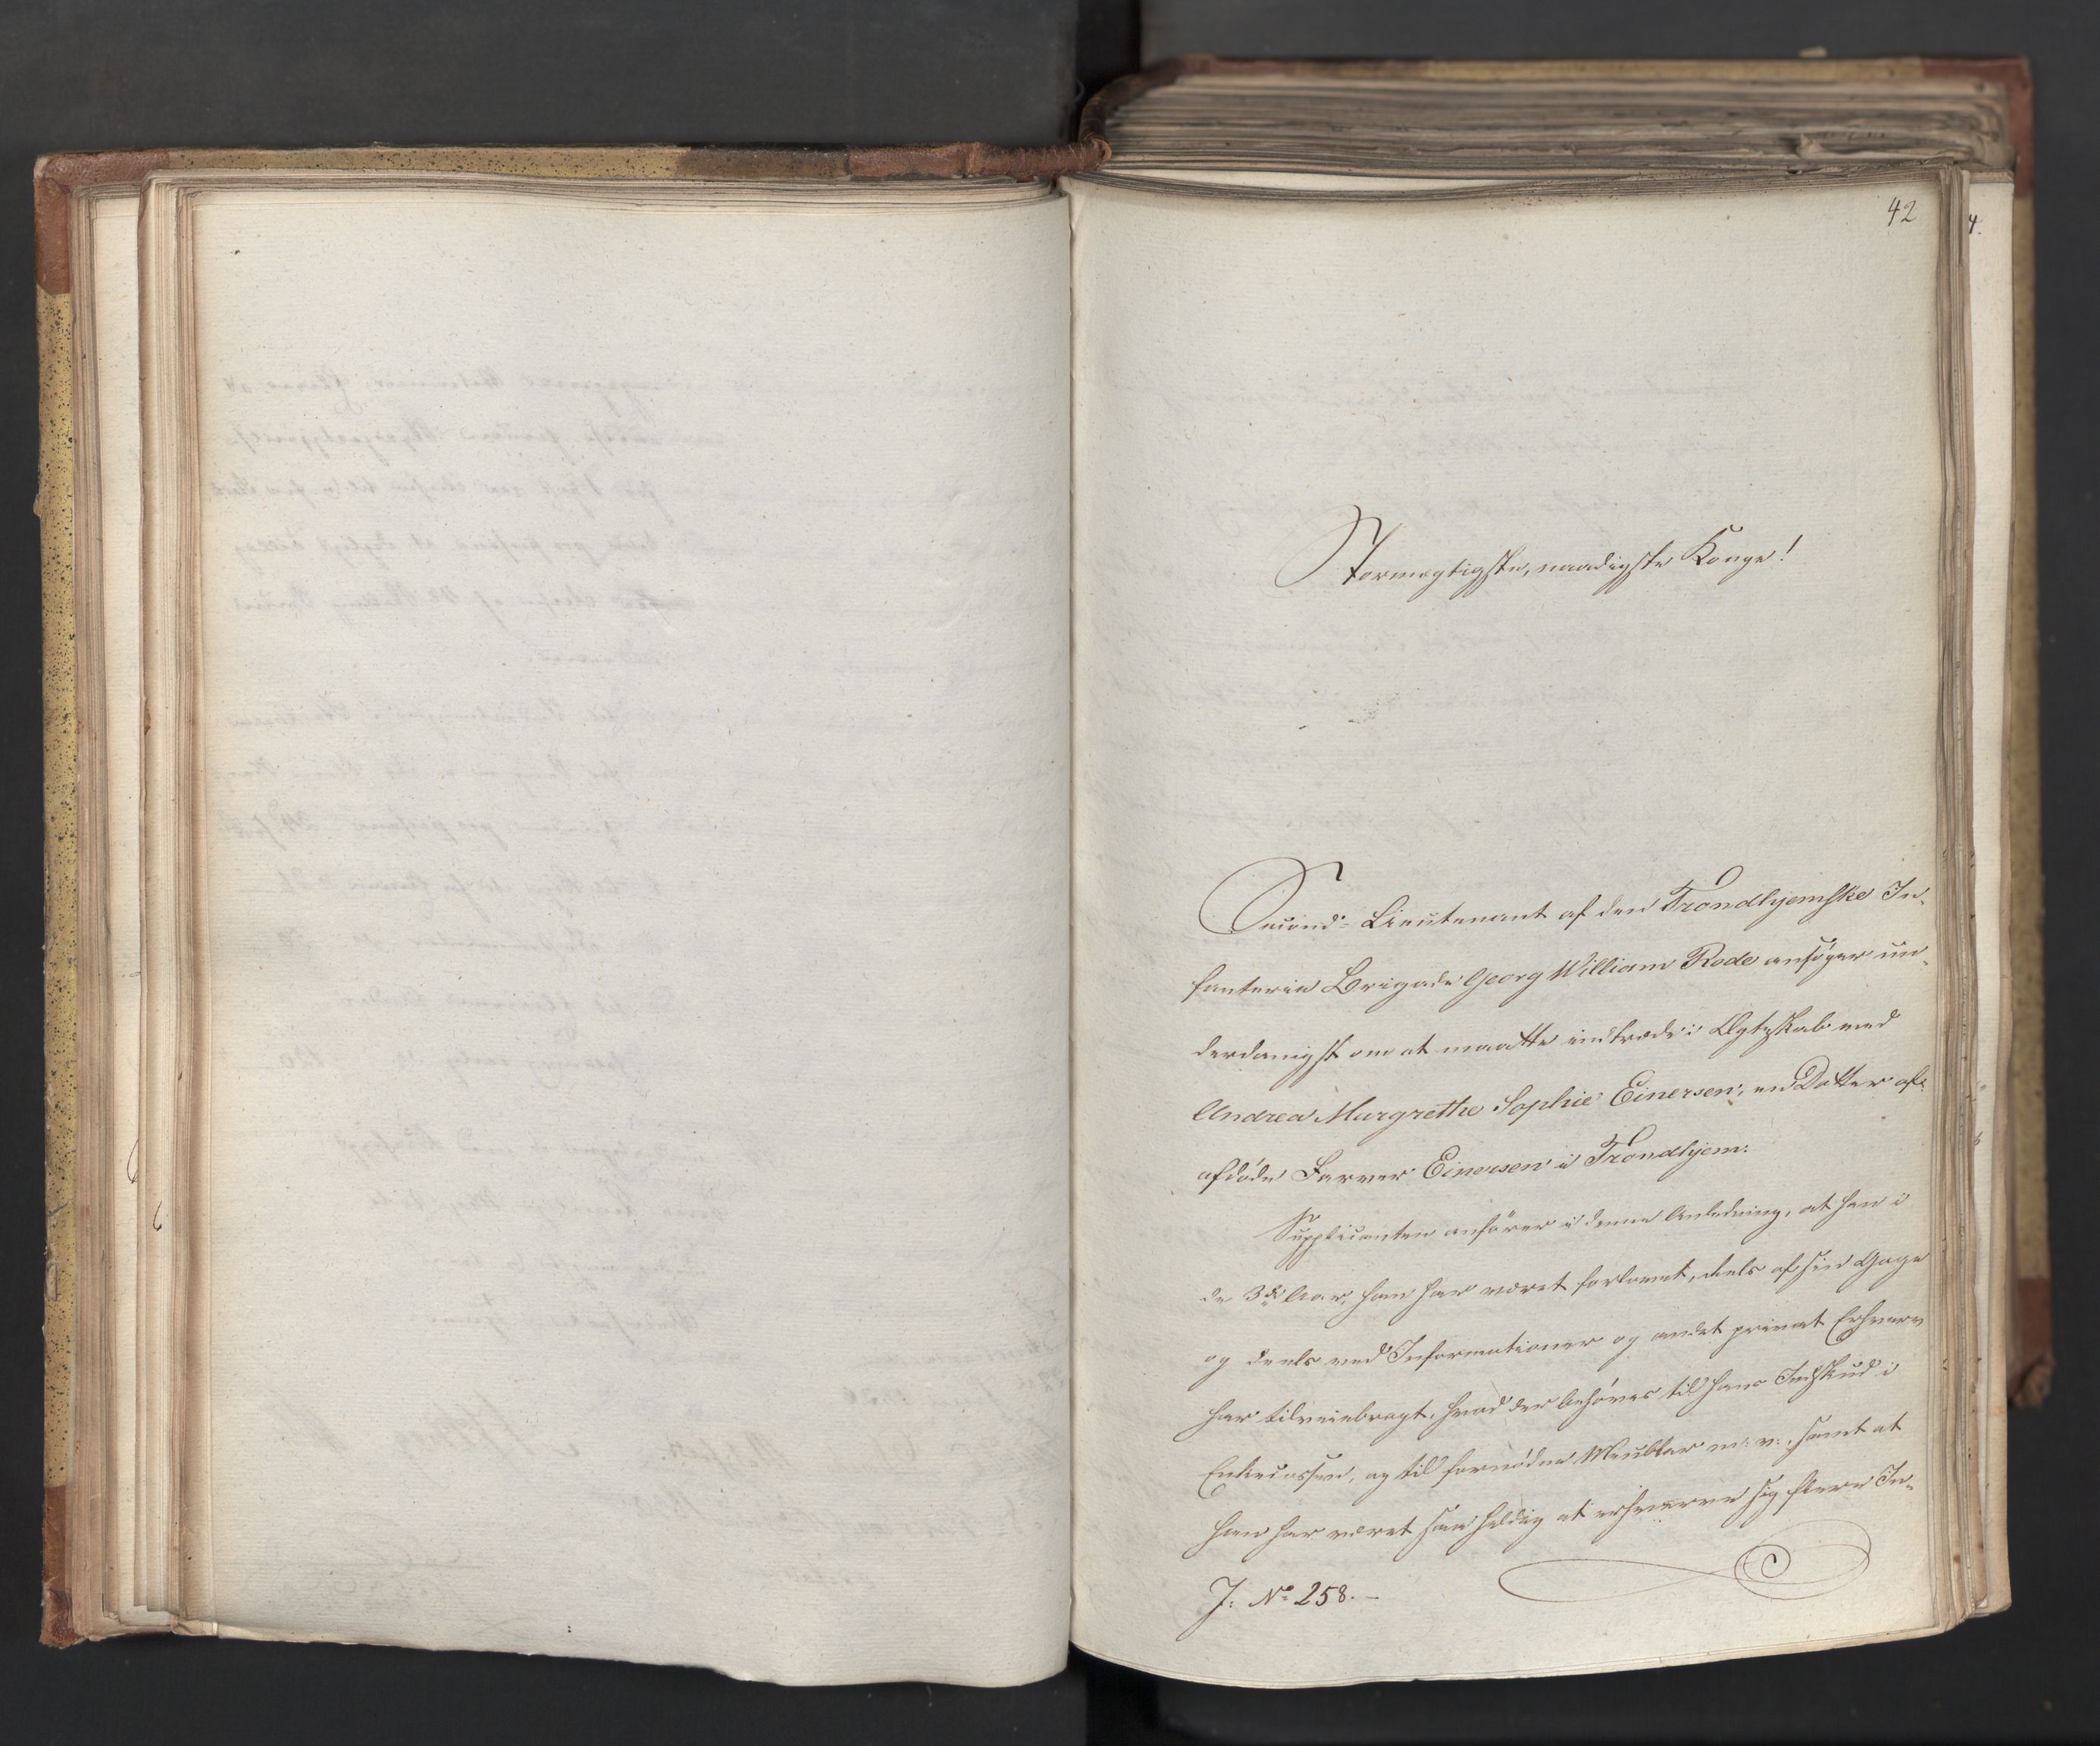 42
4.
Stormægtigste, naadigste Konge!
Second-Lieutenant af den Trondhjemske In-
fanterie Brigade Georg William Rode ansøger un-
derdanigst om at maatte indtræde i Ægteskab med
Andrea Margrethe Sophie Einersen, en Datter af
afdøde Farver Einersen i Trondhjem:
Supplicanten anfører i denne Anledning, at han i
de 3de Aar, han har været forlovet, deels af sin Gage
og deels ved Informationer og andet privat Erhverv
har tilveiebragt, hvad der behøves til hans Indskud i
Enkecassen, og til fornødne Meubler m: v:, samt at
han har været saa heldig at erhverve sig flere In-
J: No 258. –